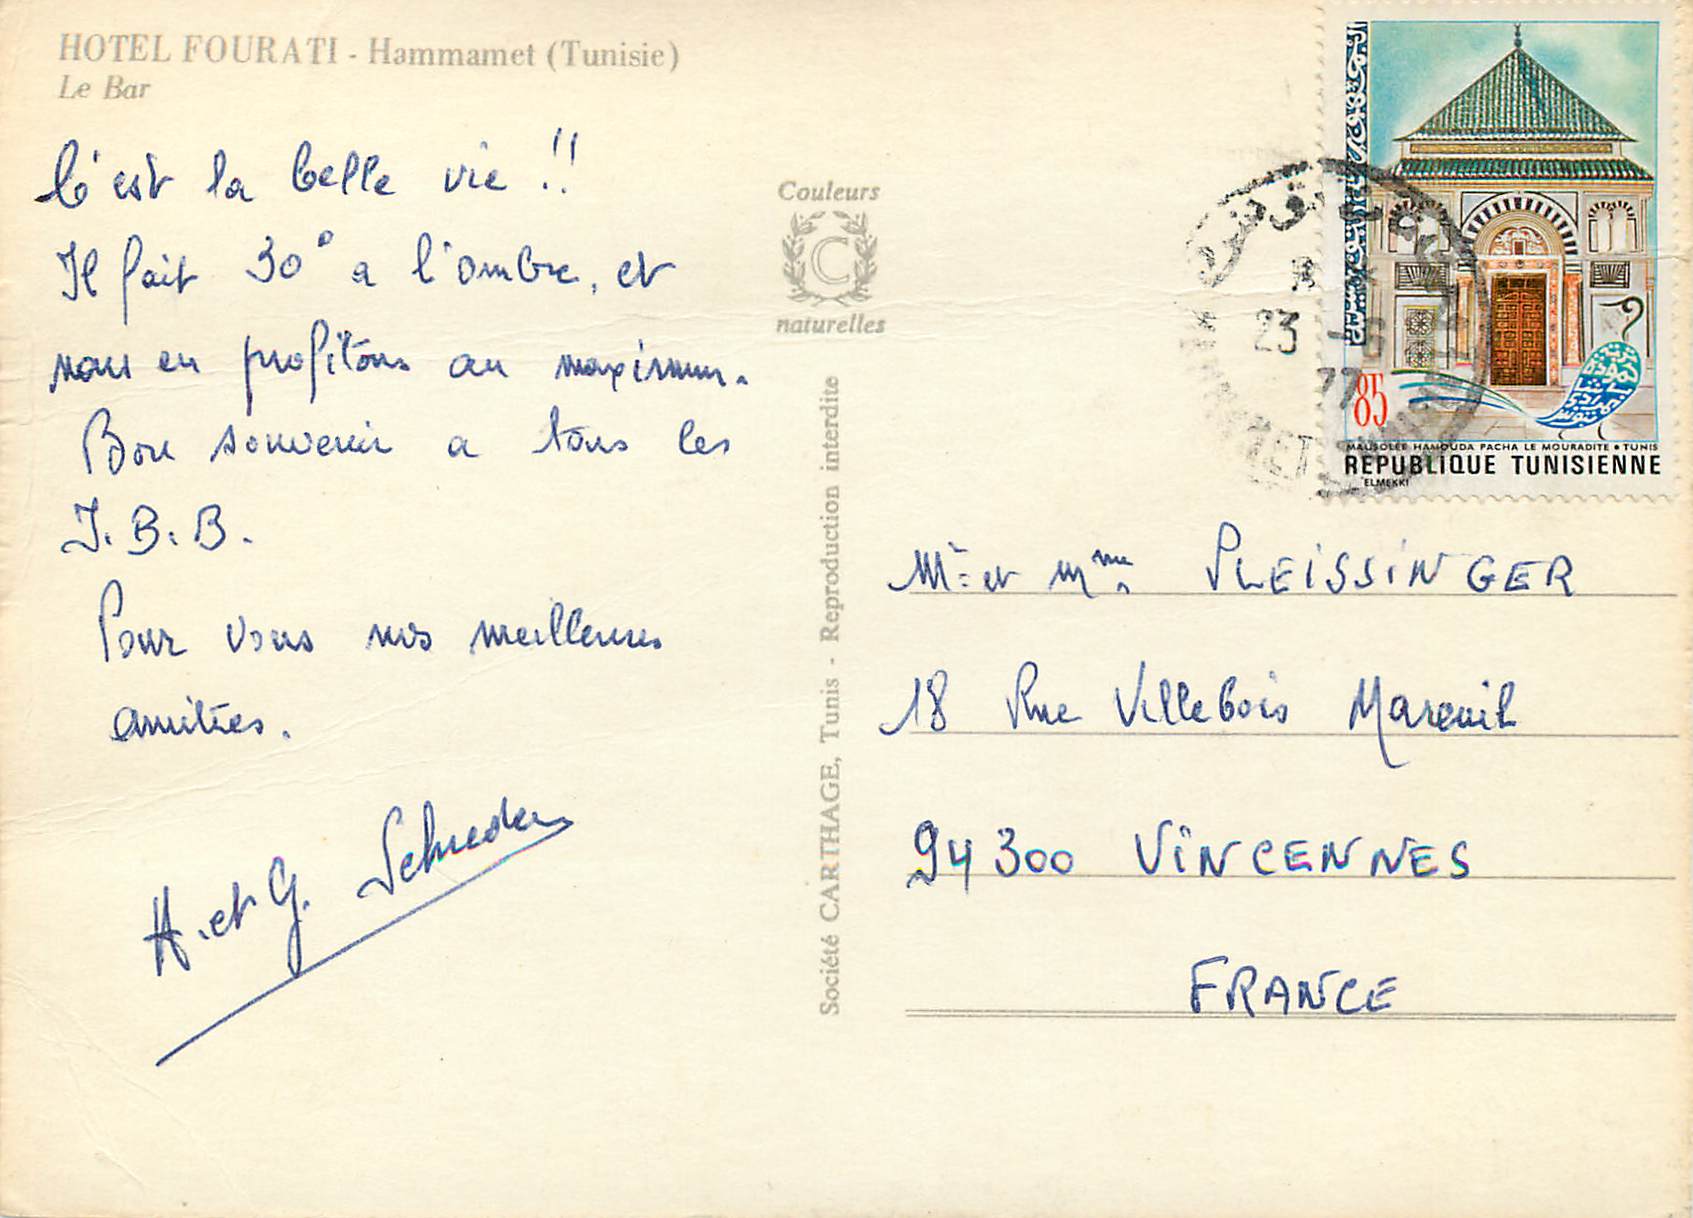 HOTEL FOURATI - Hammamet (Tunisie)
Le Bar
C'est la belle vie !!
Il fait 30° a l'ombre, et
nous en profitons au maximum.
Bon souvenir a tous les
J.B.B.
Pour vous nos meilleures
amitiés.
A. et G. Schreder
Couleurs
C
naturelles
Société CARTHAGE, Tunis - Reproduction interdite
23 -6
77
85
MAUSOLÉE HAMOUDA PACHA LE MOURADITE • TUNIS
REPUBLIQUE TUNISIENNE
ELMEKKI
Mr et Mme PLEISSINGER
18 Rue Villebois Mareuil
94300 VINCENNES
FRANCE